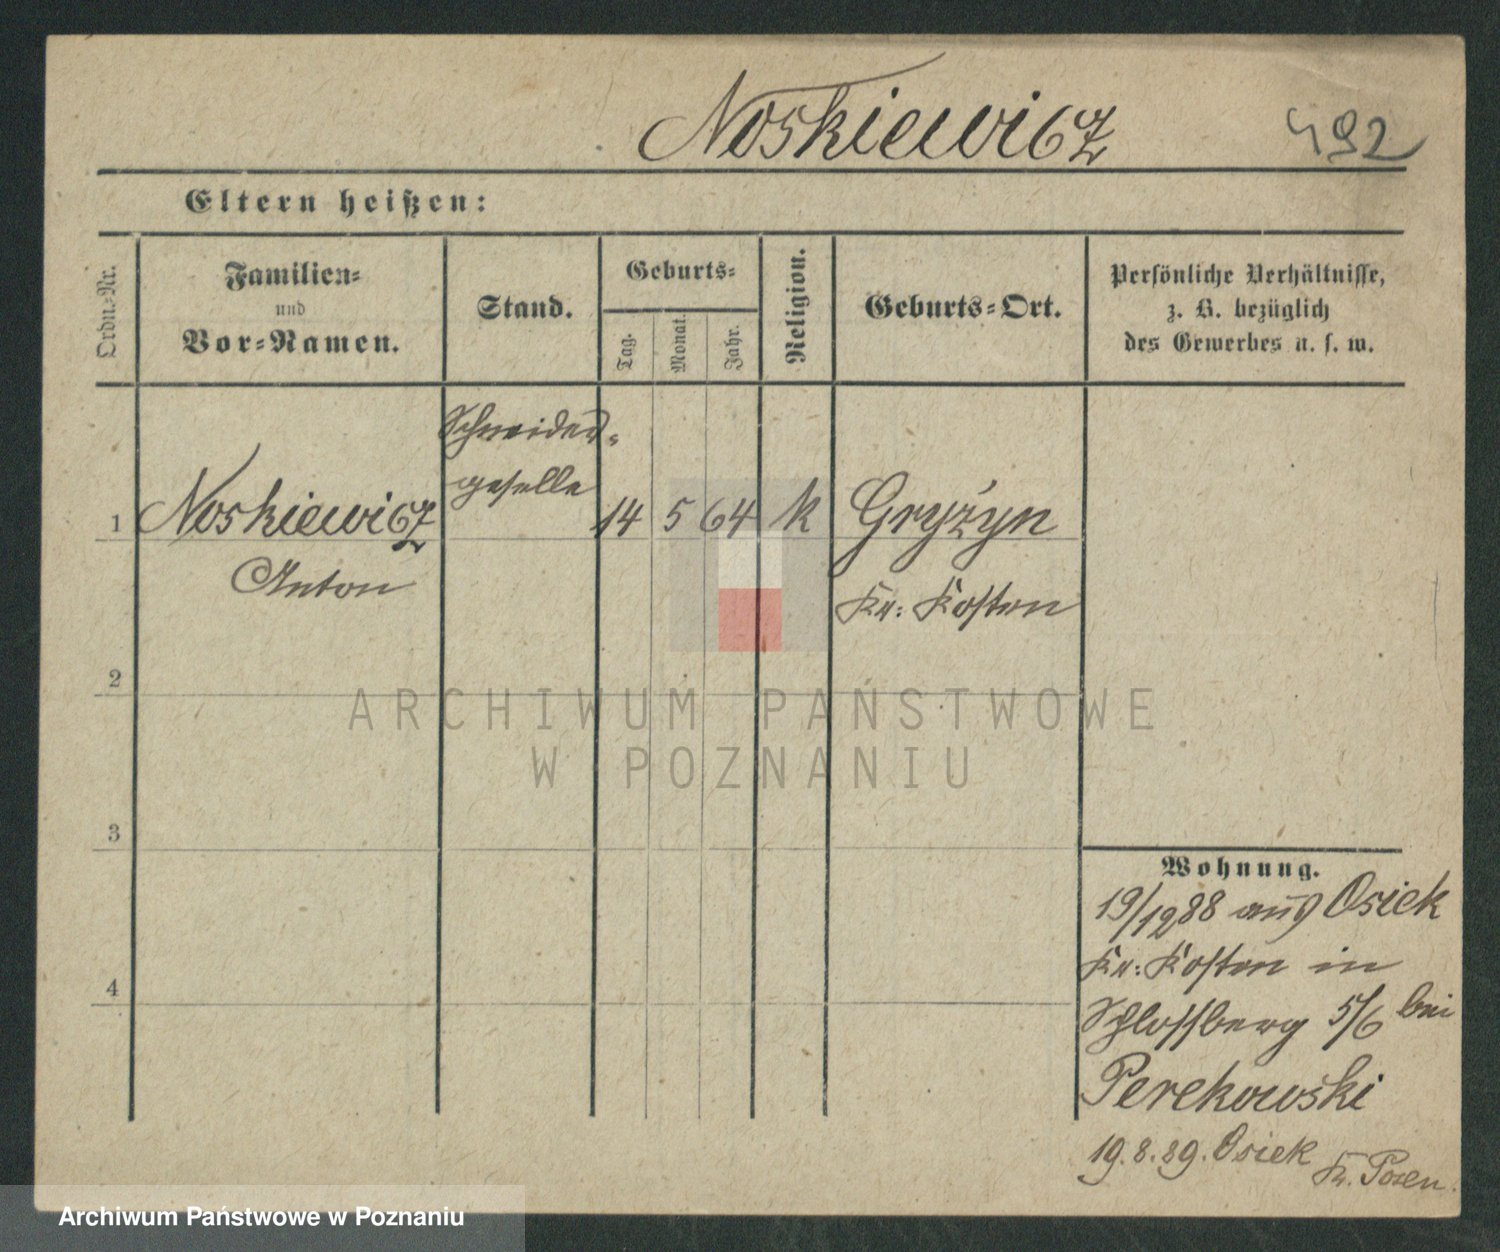 Noskiewicz 492
Eltern heißen:
Ordn.-Nr.
Familien-
und
Vor-Namen.
Stand.
Geburts-
Tag.
Monat.
Jahr.
Religion.
Geburts-Ort.
Persönliche Verhältnisse,
z. B. bezüglich
des Gewerbes u. s. w.
Schneider-
geselle
1 Noskiewicz 14 5 64 k Gryżyn
Anton Kr: Kosten
2
3
4
Wohnung.
19/12 88 aus Osiek
Kr: Kosten in
Schlossberg 5/6 bei
Perekowski
19.8.89. Osiek Kr. Posen.
ARCHIWUM PAŃSTWOWE
W POZNANIU
Archiwum Państwowe w Poznaniu